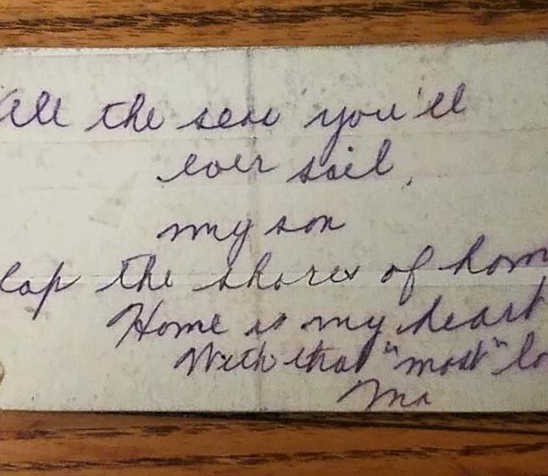 All the seas you'll
ever sail,
my son
lap the shores of hom
Home is my heart
With that "most" lo
Ma